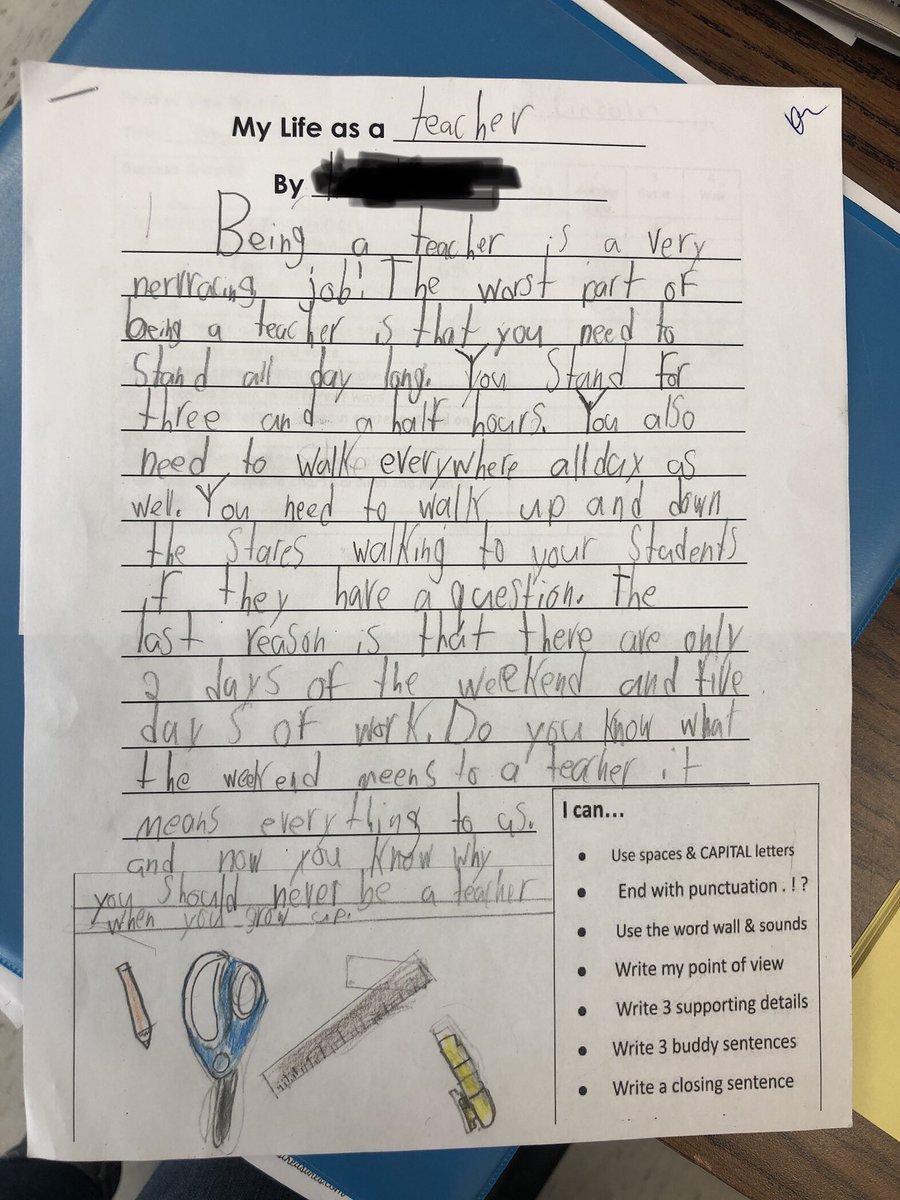 My Life as a teacher
By
Being a teacher is a very
nerwracing job! The worst part of
being a teacher is that you need to
Stand all day long. You Stand for
three and a half hours. You also
need to walk everywhere all day as
well. You need to walk up and down
the Stares walking to your Students
if they have a question. The
last reason is that there are only
2 days of the weekend and five
days of work. Do you know what
the weekend meens to a teacher it
means everything to us.
and now you know why
you Should never be a teacher
when you grow up.
I can...
• Use spaces & CAPITAL letters
• End with punctuation . ! ?
• Use the word wall & sounds
• Write my point of view
• Write 3 supporting details
• Write 3 buddy sentences
• Write a closing sentence